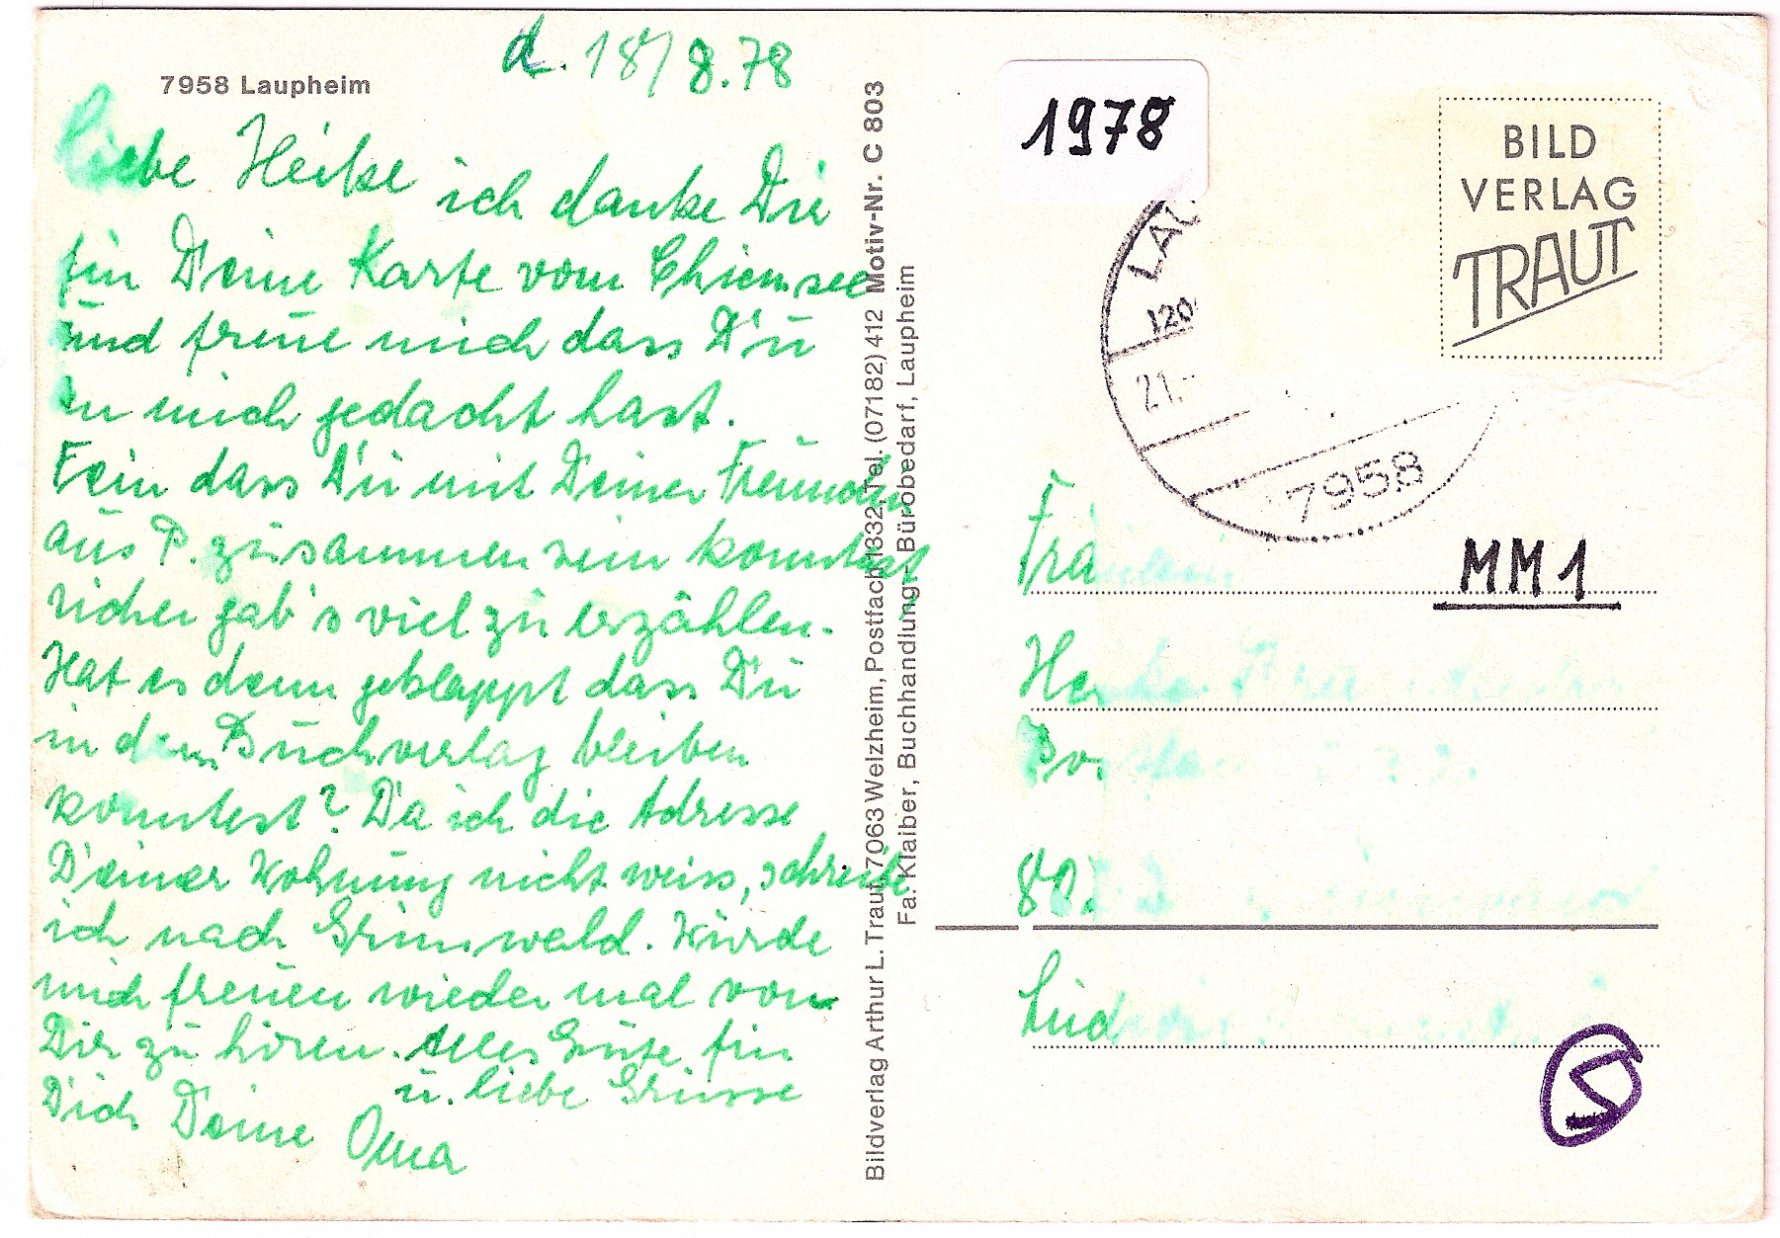 7958 Laupheim
d. 18/8.78
Liebe Heike ich danke Dir
für Deine Karte vom Chiemsee
und freue mich dass Du
an mich gedacht hast.
Fein dass Du mit Deiner Freundin
aus P. zusammen sein konntest
sicher gab's viel zu erzählen.
Hat es denn geklappt dass Du
in dem Buchverlag bleiben
konntest? Da ich die Adresse
Deiner Wohnung nicht weiss, schreibe
ich nach Grünwald. Würde
mich freuen wieder mal von
Dir zu hören. Alles Gute für
Dich Deine Oma
u. liebe Grüsse
Bildverlag Arthur L. Traut 7063 Welzheim, Postfach 1332, Tel. (07182) 412 Motiv-Nr. C 803
Fa. Klaiber, Buchhandlung - Bürobedarf, Laupheim
1978
BILD
VERLAG
TRAUT
LAU
120
21.
7958
MM1
Frä
He
Po
80
Lud
5